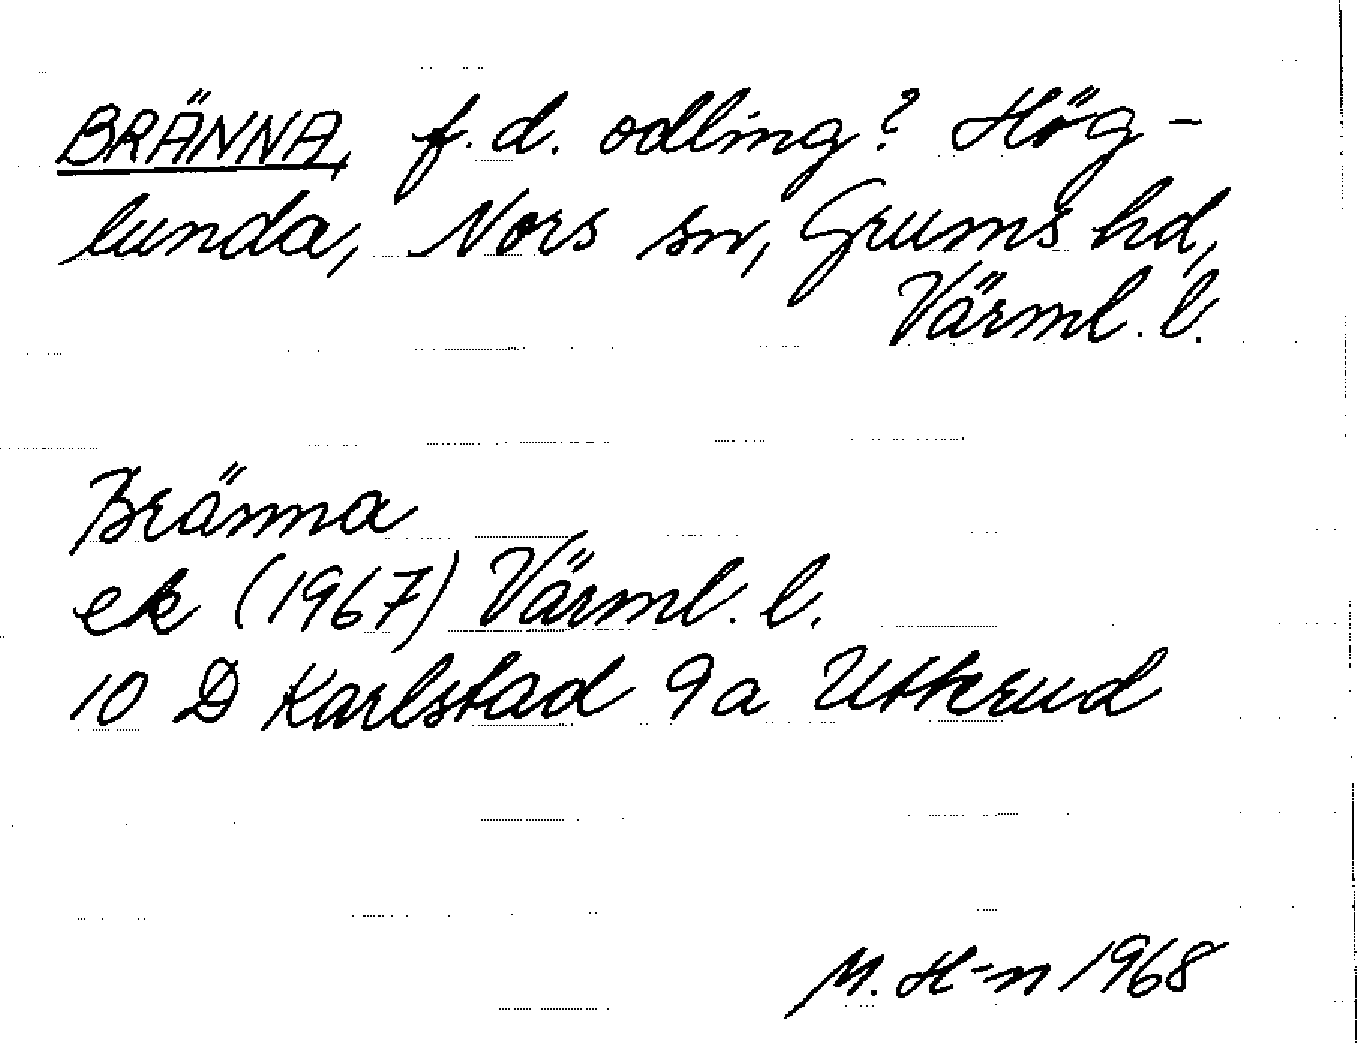 BRÄNNA, f.d. odling? Hög-
lunda, Nors sn, Grums hd,
Värml. l.
Bränna
ek (1967) Värml. l.
10 D Karlstad 9a Utterud
M. H-n 1968